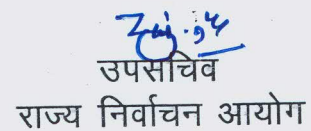 उपसचिव
राज्य निर्वाचन आयोग